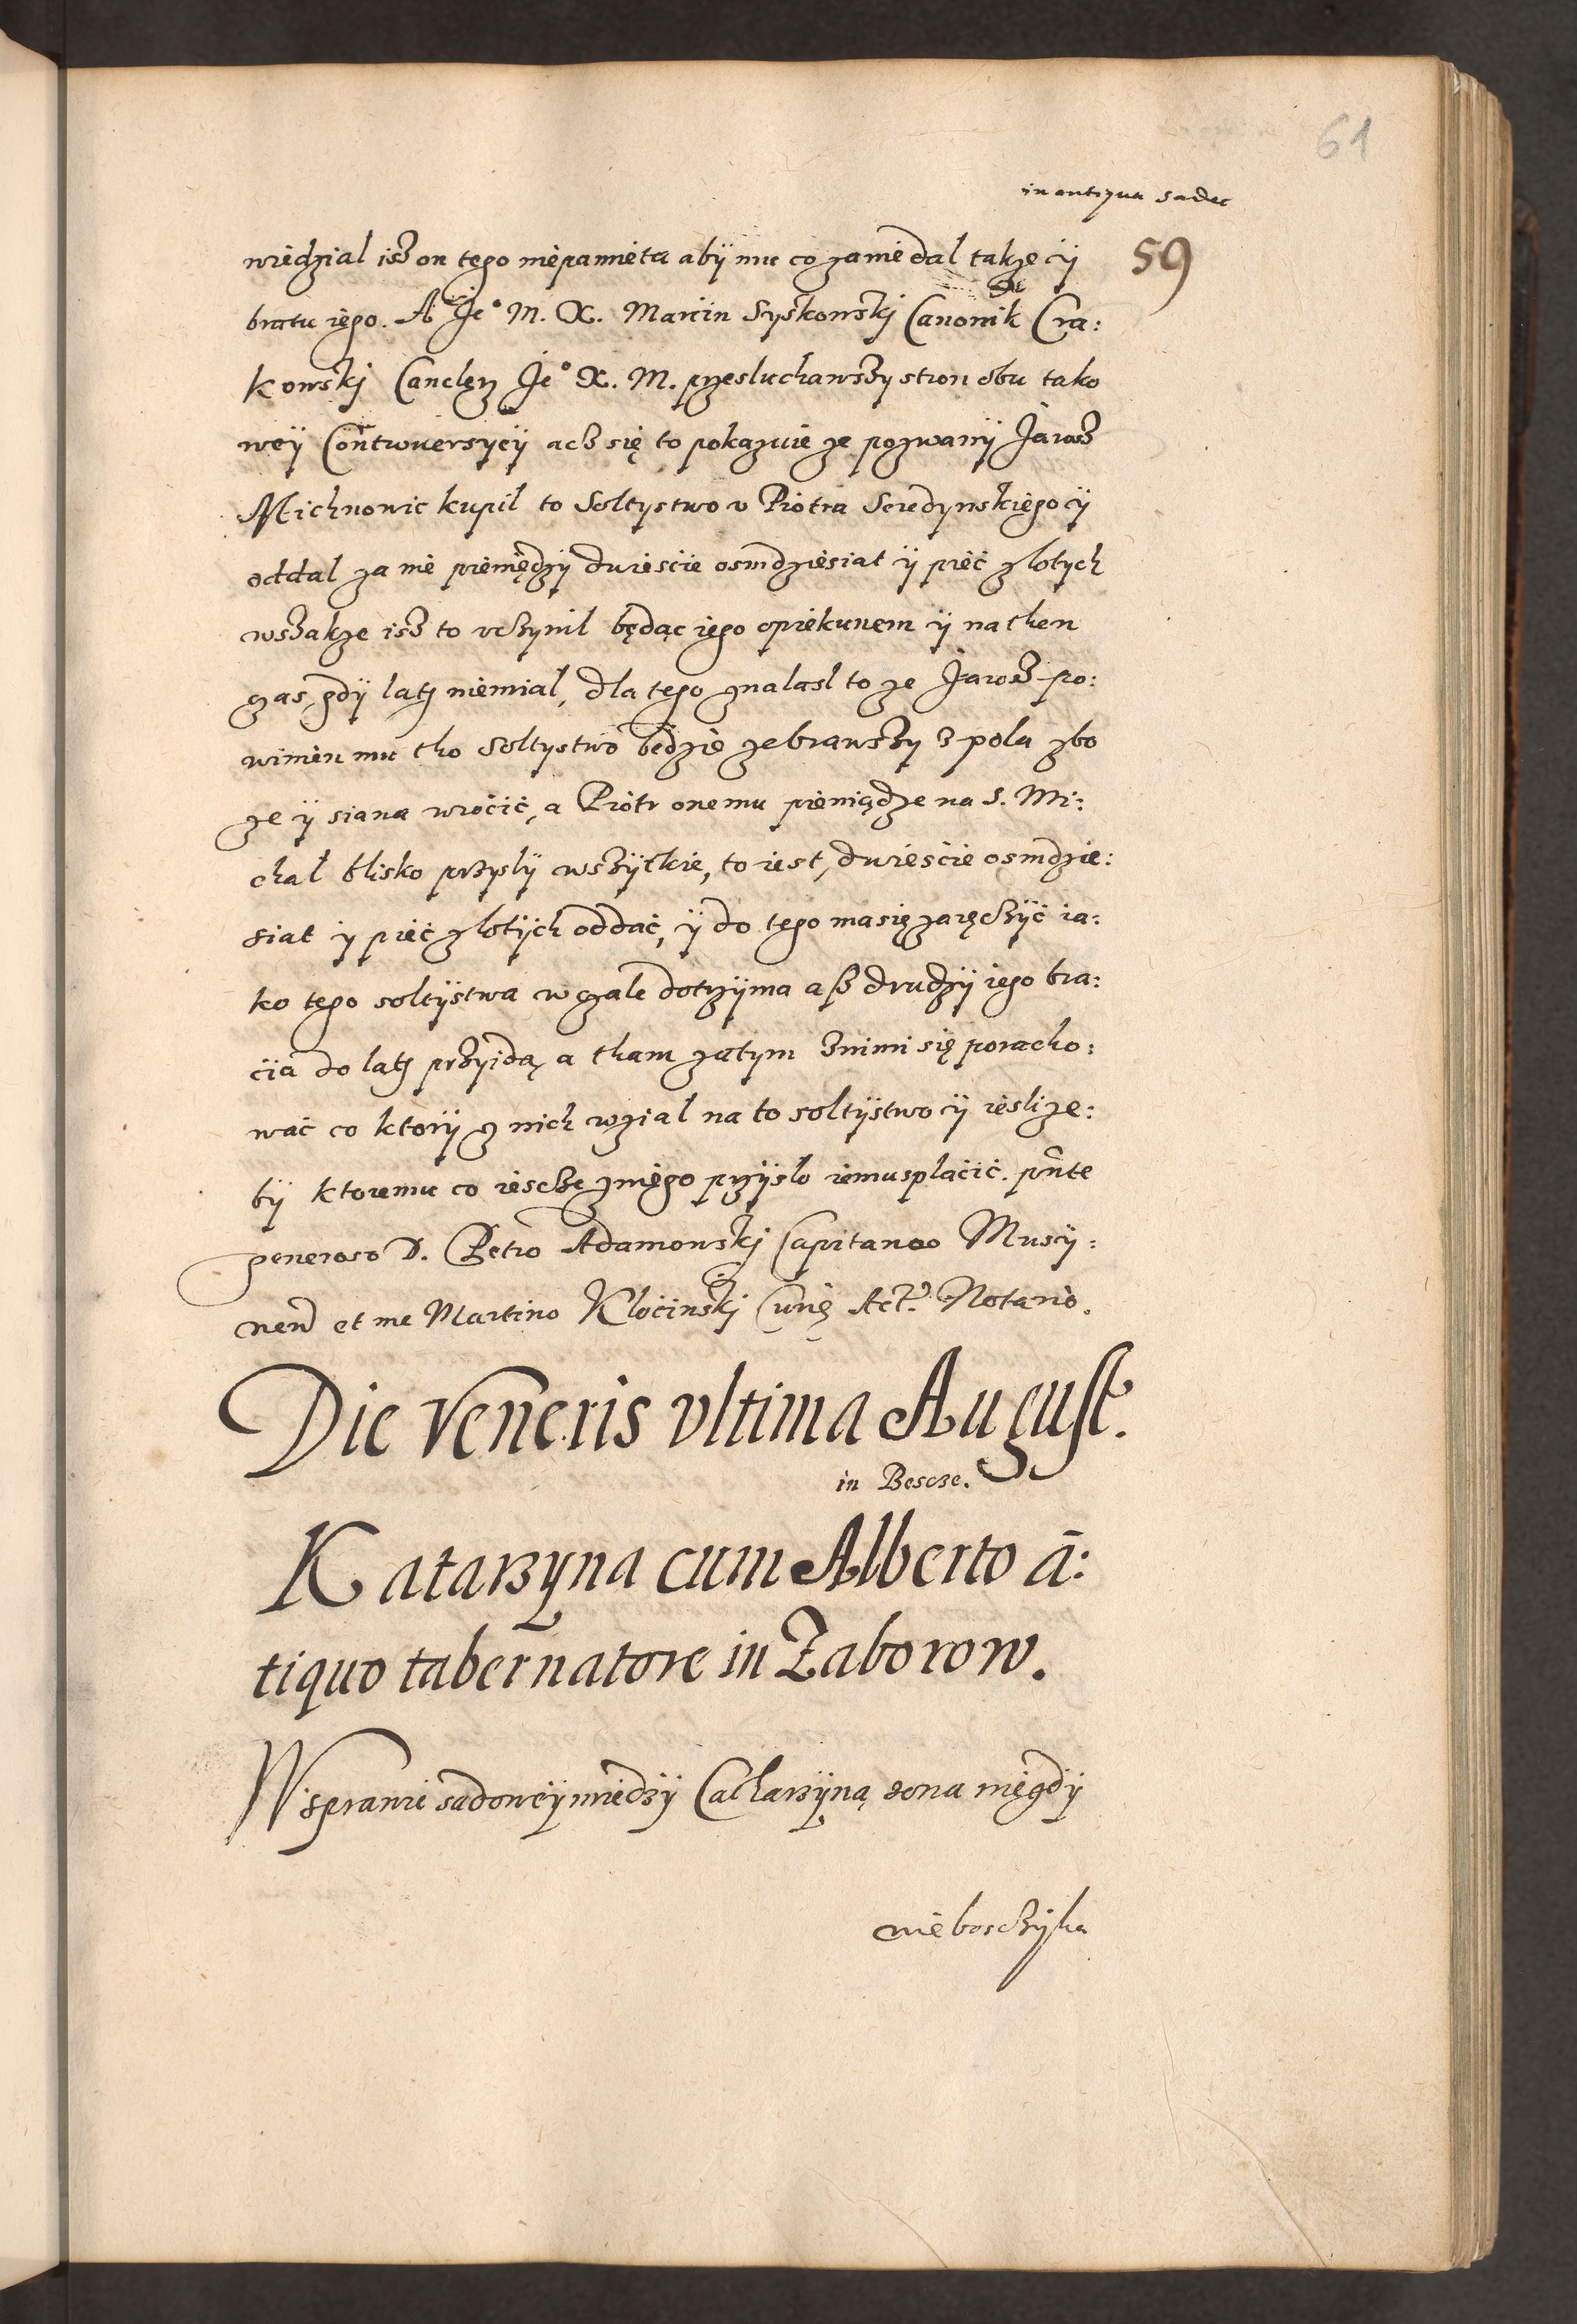 61
in antiqua Sadec
59
wiedzial isz on tego niepamieta abÿ mu co zanie dal takze ÿ
bratu iego. A Je° M. X. Marcin Syskowskj Canonik Cra:
kowskj Canclerz Je° X. M. przesluchawszy stron obu tako
weÿ Controuersyeÿ acz się to pokazuie ze pozwanÿ Jarosz
Michnowic kupil to Soltystwo v Piotra Seredynskiego ÿ
oddal za nie pieniędzÿ dwiescie osmdziesiat ÿ pieć zlotych
wszakze isz to vczynil będąc iego opiekunem ÿ na then
czas, gdÿ latz niemial, dla tego znalasl to ze Jarosz po:
winien mu tho Soltystwo bedzie zebrawszy z pola zbo
ze ÿ siana wrocić, a Piotr onemu pieniądze na S. Mi:
chal blisko przyslÿ wszÿtkie, to iest, dwiescie osmdzie:
siat ÿ pieć zlotÿch oddać, ÿ do tego ma się zaręczÿć ia:
ko tego soltÿstwa w czale dotrzÿma asz drudzÿ iego bra:
cia do latz przyidą, a tham zatym znimi się poracho:
wać co ktorÿ z nich wzial na to soltÿstwo ÿ iesli ze:
bÿ ktoremu co iescze zniego przÿslo iemu splacić. pnte
generoso D. Petro Adamowskj Capitaneo Musÿ:
nen et me Martino Klocinskj Curię Act. Notario.
Die Veneris vltima August.
in Bescze.
Katarzyna cum Alberto ā:
tiquo tabernatore in Zaborow.
W sprawie sadoweÿ miedzÿ Catharzÿną zona niegdÿ
nieboszczÿka